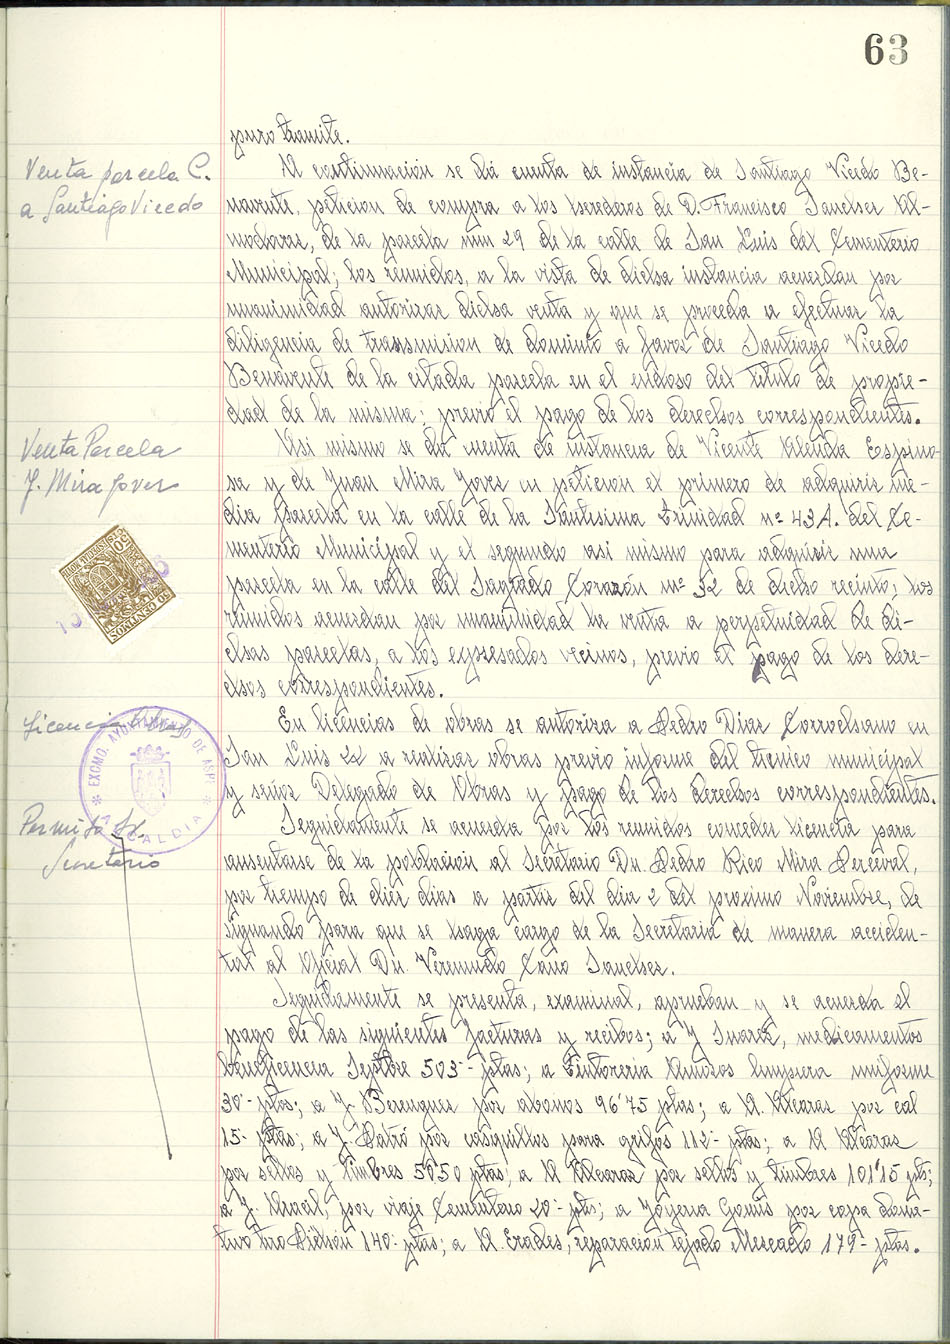 63
puro tramite.
Venta parcela C.
a Santiago Vicedo
Al continuacion se dá cuenta de instancia de Santiago Vicedo Be-
navente, peticion de compra a los herederos de D. Francisco Sanchez Al-
modovar, de la parcela num 29 de la calle de San Luis del Cementerio
Municipal; los reunidos, a la vista de dicha instancia acuerdan por
unanimidad autorizar dicha venta y que se proceda a efectuar la
diligencia de transmision de dominio a favor de Santiago Vicedo
Benavente de la citada parcela en el endoso del titulo de propie-
dad de la misma; previo el pago de los derechos correspondientes.
Venta Parcela
J. Mira Jover
Asi mismo se da cuenta de instancia de Vicente Alenda Espino
sa y de Juan Mira Jover en peticion el primero de adquirir me-
dia parcela en la calle de la Santisima Trinidad nº 43A. del Ce-
menterio Municipal y el segundo asi mismo para adquirir una
parcela en la calle del Sagrado Corazón nº 32 de dicho recinto; los
reunidos acuerdan por unanimidad la venta a perpetuidad de di-
chas parcelas, a los expresados vecinos, previo el pago de los dere-
chos correspondientes.
50 CENTIMOS
Licencia obras
EXCMO. AYUNTAMIENTO DE ASPE
ALCALDIA
En licencias de obras se autoriza a Pedro Diaz Corrochano en
San Luis 22 a realizar obras previo informe del tecnico municipal
y señor Delegado de Obras y pago de los derechos correspondientes.
Permiso Sr.
Secretario
Seguidamente se acuerda por los reunidos conceder licencia para
ausentarse de la poblacion al Secretario Dn. Pedro Rico Mira Perceval,
por tiempo de diez dias a partir del dia 2 del proximo Noviembre, de
signando para que se haga cargo de la Secretaria de manera acciden-
tal al Oficial Dn. Veremundo Cano Sanchez.
Seguidamente se presenta, examinal, aprueban y se acuerda el
pago de las siguientes facturas y recibos; a J Suarez, medicamentos
beneficencia Septbre 503- ptas; a Tintoreria limpieza uniforme
30- ptas; a J. Berenguer por abonos 96'75 ptas; a A. Alcaraz por cal
15- ptas; a J. Patró por casquillos para grifos 112- ptas; a A Alcaraz
por sellos y timbres 50'50 ptas; a A Alcaraz por sellos y timbres 101'15 pts;
a J. por viaje Cementerio 20- pts; a Joyeria Gomis por copa dona-
tivo tiro Pichón 140- ptas; a A. Erades, reparacion tejado Mercado 179- ptas.